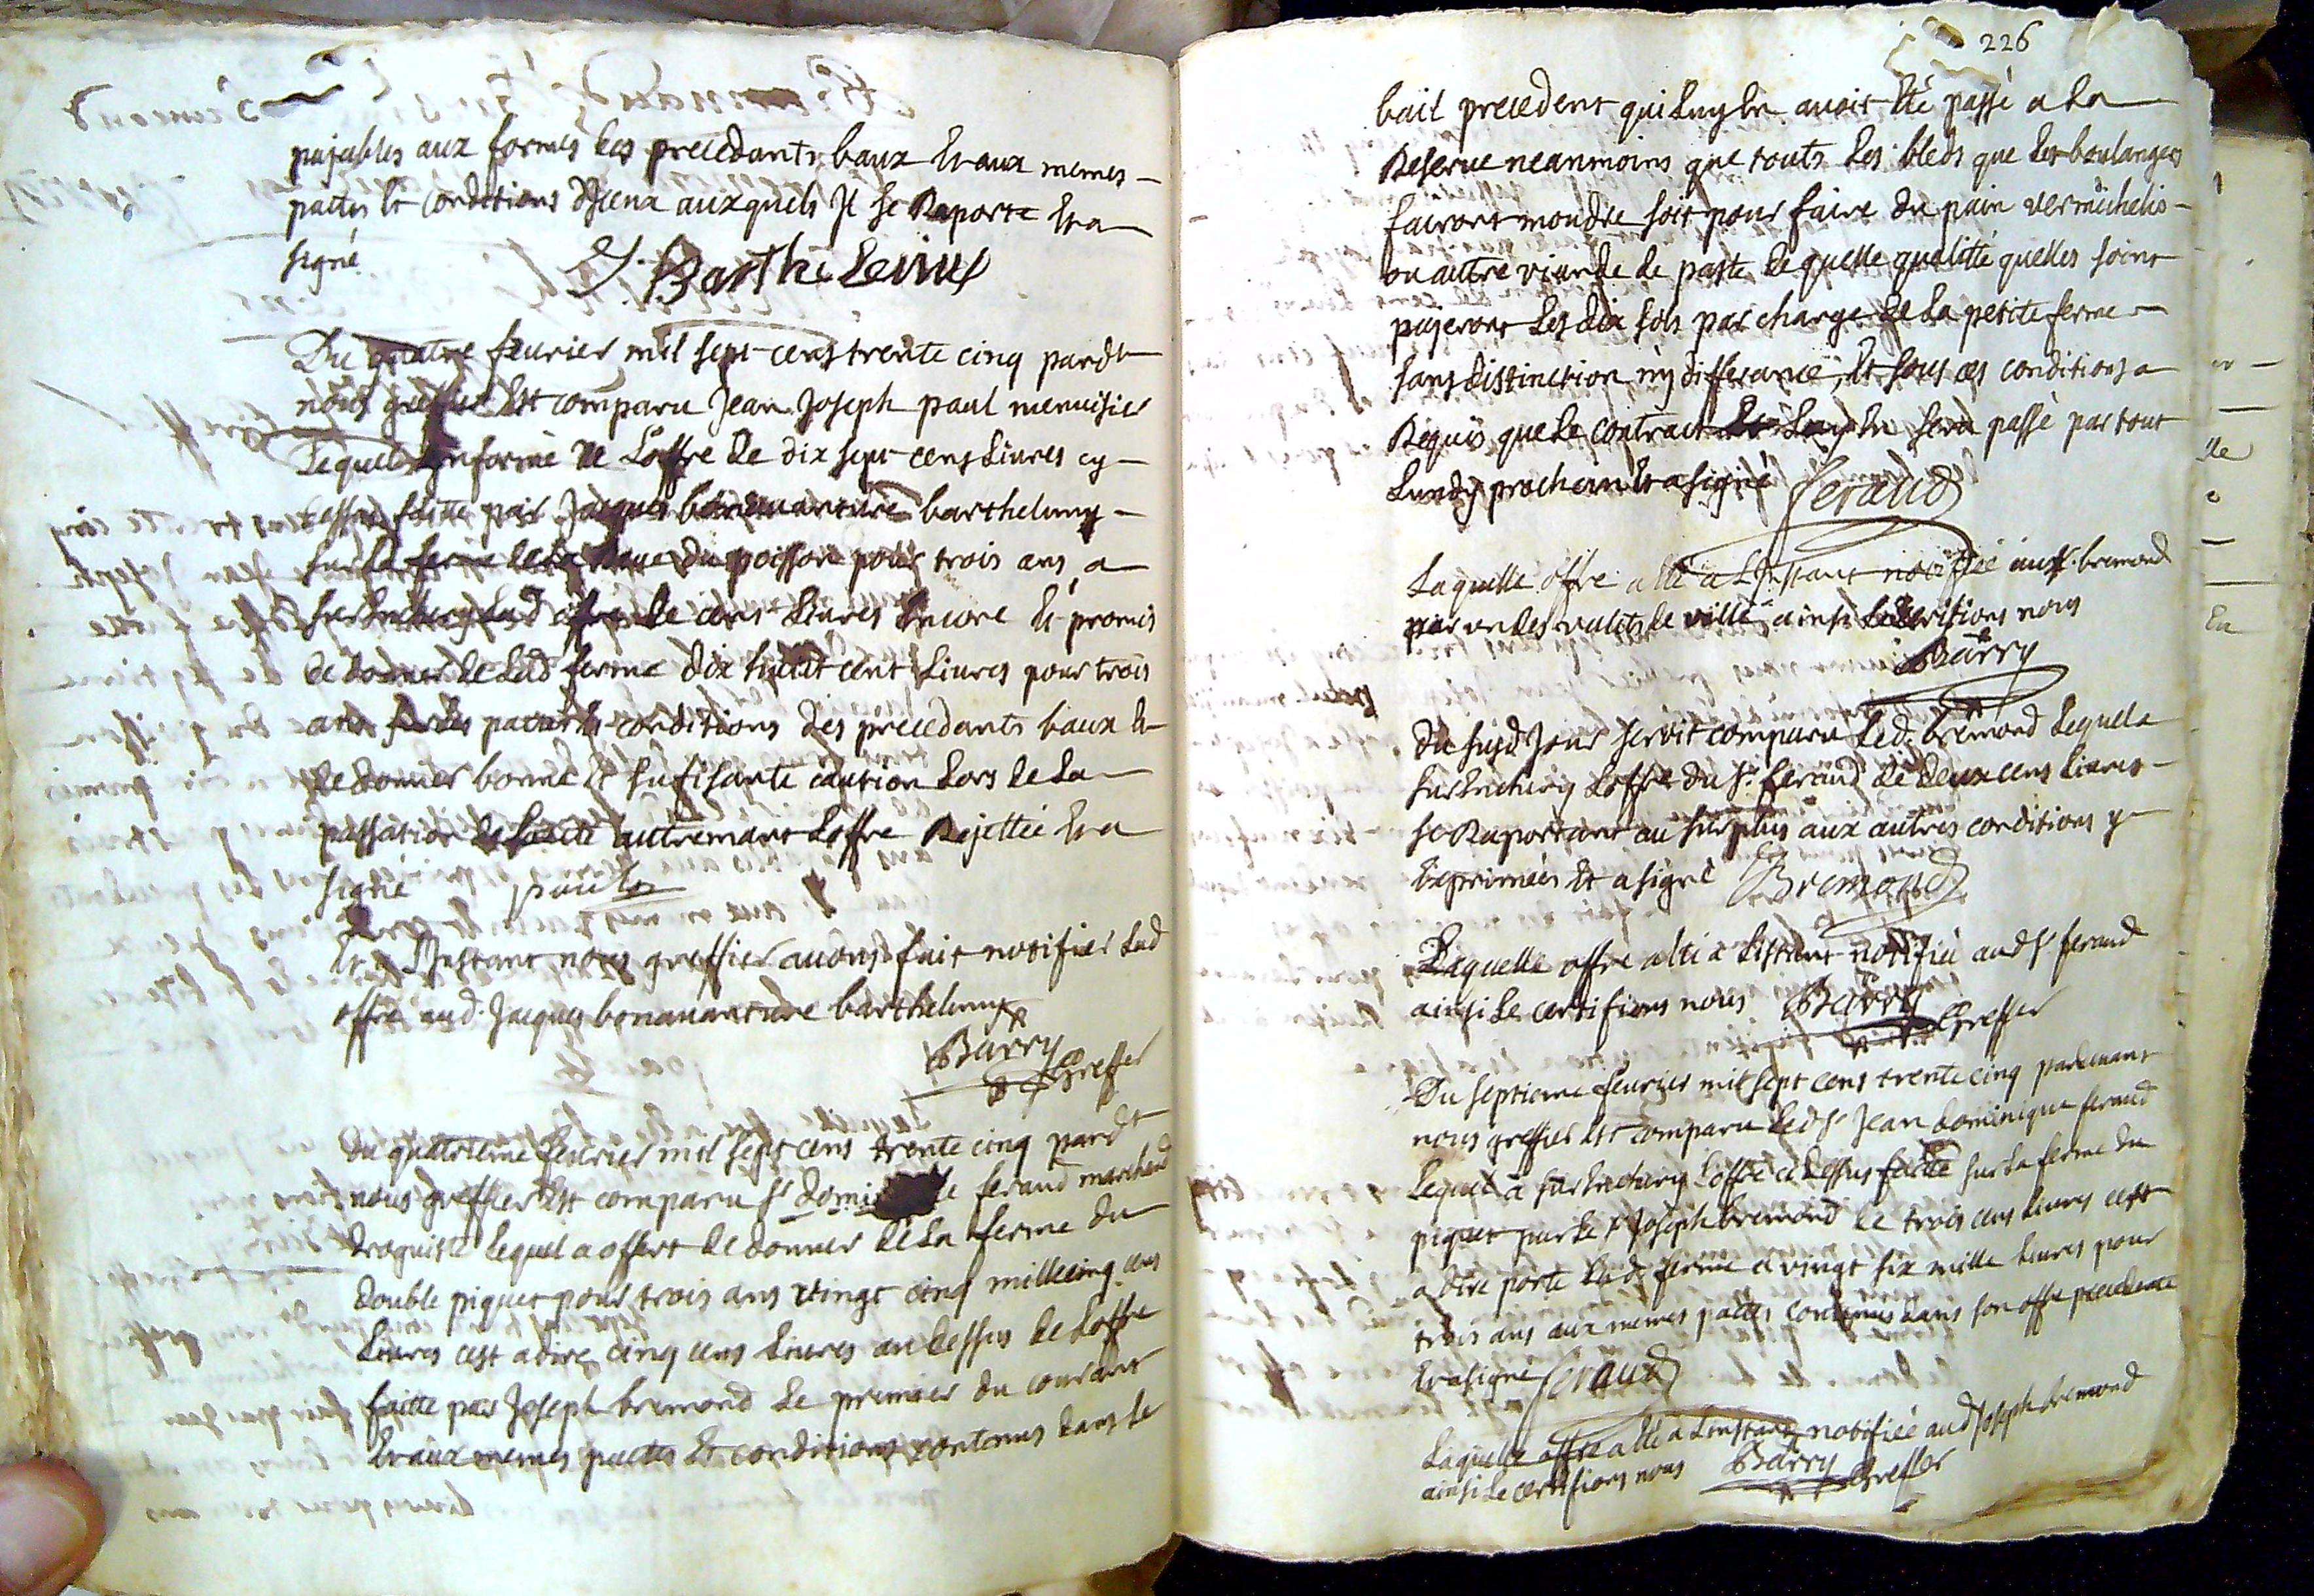 payables aux formes des precedants baux et aux memes
pactes et conditions d'Jceux auxquels Jl se Raporte et a
signé
J Barthelemy
Du quatre feurier mil sept cens trente cinq pardt
nous greffier Est comparu Jean Joseph paul menuisier
Lequel Jnformé de Loffre de dix sept cens Liures cy
dessus faitte par Jacques bonauanture barthelemy
sur la ferme de la Reue du poisson pour trois ans a
surEnchery Lad offre de cens Liures Encore Et promis
de donner de Lad ferme dix huit cent Liures pour trois
ans conditions des precedants baux Et
de donner bonne Et sufisante caution Lors de La
passation autremant Loffre Rejettée Et a
signé paul
Et a LJnstant nous greffier auons fait notifier Lad
offre aud. Jacques bonauanture barthelemy
Barry
Greffier
Du quatrieme feurier mil sept cens trente cinq pardt
nous greffier Est comparu sr feraud marchand
droguiste Lequel a offert de donner de La ferme du
double piquet pour trois ans vingt cinq mille cinq cens
Liures cest a dire cinq cens Liures au dessus de Loffre
faitte par Joseph bremond Le premier du courant
Et aux memes pactes Et conditions contenus dans Le
226
bail precedent qui Luy En auoit Eté passé a La
Reserue neanmoins que touts Les bleds que Les boulangers
fairont moudre soit pour faire du pain vermichelis
ou autre viande de paste de quelle qualitté quelles soint
payeront Les dix sols par charge de La petite ferme
sans distinction ny differance, Et sous ces conditions a
Requis que Le contract Luy En sera passé par tout
Lundy prochain Et a signé feraud
Laquelle offre a Eté a LJnstant notiffiée aud sr. bremond
par un des valets de ville ainsi Le certifions nous
Barry
du susd Jour seroit comparu Led. bremond Lequel a
surEnchery Loffre du sr. feraud de deux cens Liures
se Raportant au surplus aux autres conditions y
Exprimées Et a signé Bremond
Laquelle offre a Eté a Listant notifiée aud sr feraud
ainsi Le certifions nous Barry
Greffier
Du septieme feurier mil sept cens trente cinq pardeuant
nous greffier Est comparu Led sr Jean dominique feraud
Lequel a surEnchery Loffre cy dessus faitte sur La ferme du
piquet par Le sr Joseph bremond de trois cens Liures cest
a dire porte Lad. ferme a vingt six mille Liures pour
trois ans aux memes pactes contenus dans son offre precedente
Et a signé feraud
Laquelle offre a Eté a Linstant notifiée aud Joseph bremond
ainsi Le certifions nous Barry Greffier